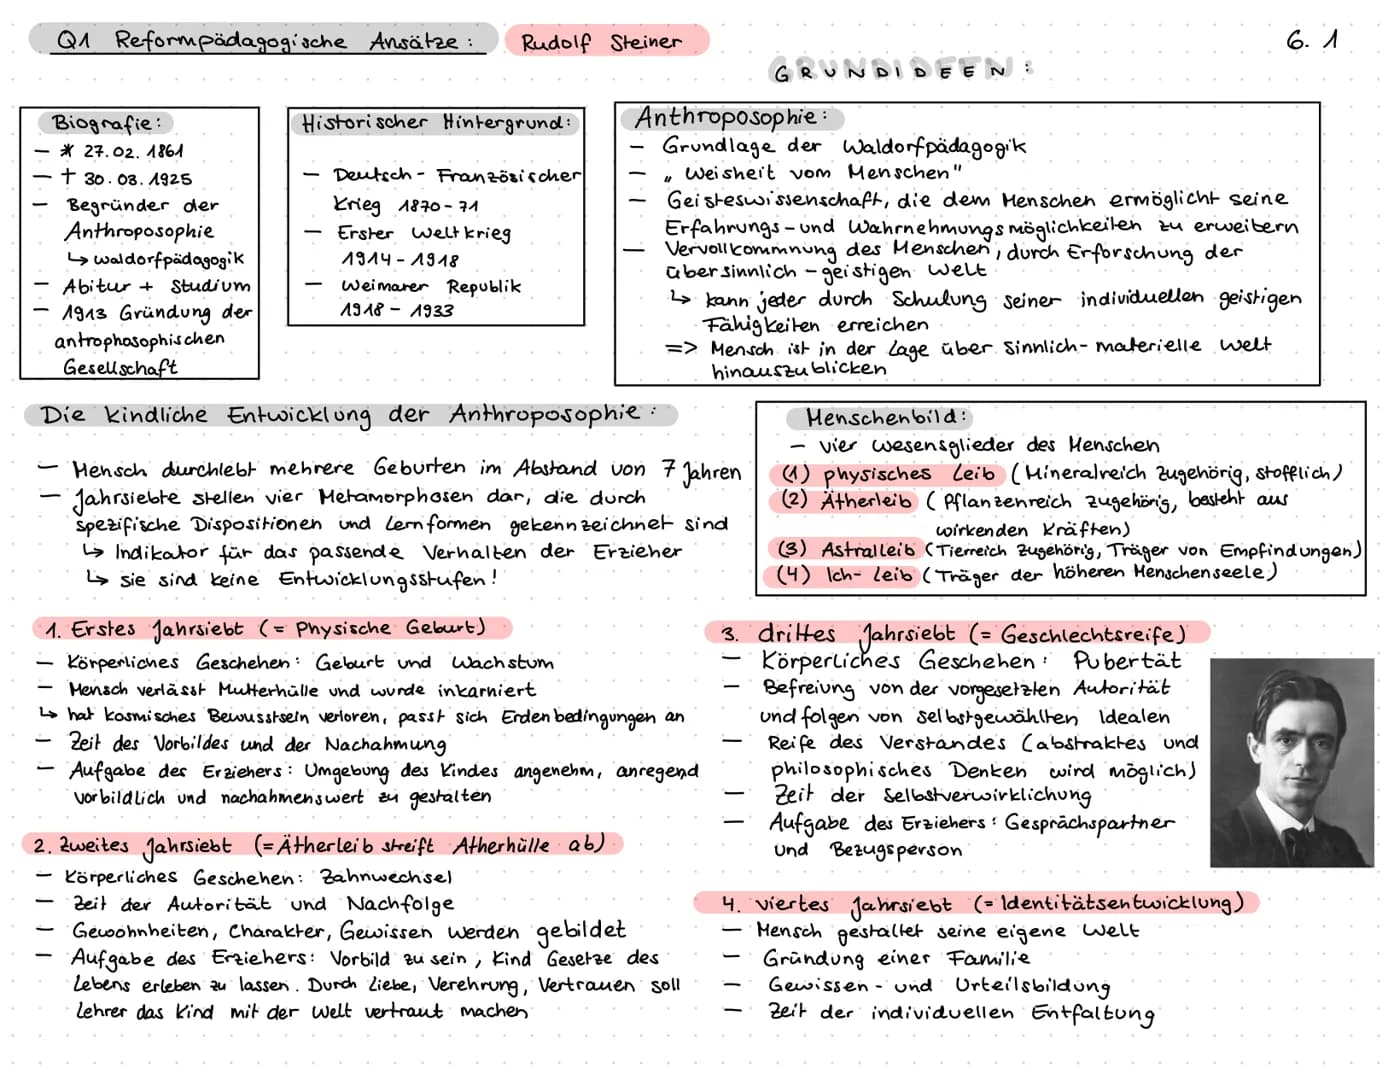 Q1 Reformpädagogische Ansätze: Rudolf Steiner
6.1
GRUNDIDEEN:
Biografie:
- * 27.02.1861
- † 30.03.1925
- Begründer der
Anthroposophie
↳ waldorfpädagogik
- Abitur + Studium
- 1913 Gründung der
antrophosophischen
Gesellschaft
Historischer Hintergrund:
- Deutsch-Französischer
Krieg 1870-71
- Erster Weltkrieg
1914-1918
- Weimarer Republik
1918-1933
Anthroposophie:
- Grundlage der Waldorfpädagogik
- „Weisheit vom Menschen"
- Geisteswissenschaft, die dem Menschen ermöglicht seine
Erfahrungs- und Wahrnehmungsmöglichkeiten zu erweitern
- Vervollkommnung des Menschen, durch Erforschung der
übersinnlich-geistigen Welt
↳ kann jeder durch Schulung seiner individuellen geistigen
Fähigkeiten erreichen
=> Mensch ist in der Lage über sinnlich-materielle Welt
hinauszublicken
Die kindliche Entwicklung der Anthroposophie:
- Mensch durchlebt mehrere Geburten im Abstand von 7 Jahren
- Jahrsiebte stellen vier Metamorphosen dar, die durch
spezifische Dispositionen und Lernformen gekennzeichnet sind
↳ Indikator für das passende Verhalten der Erzieher
↳ sie sind keine Entwicklungsstufen!
Menschenbild:
- vier Wesensglieder des Menschen
(1) physisches Leib (Mineralreich zugehörig, stofflich)
(2) Ätherleib (Pflanzenreich zugehörig, besteht aus
wirkenden Kräften)
(3) Astralleib (Tierreich zugehörig, Träger von Empfindungen)
(4) Ich-Leib (Träger der höheren Menschenseele)
1. Erstes Jahrsiebt (= Physische Geburt)
- Körperliches Geschehen: Geburt und Wachstum
- Mensch verlässt Mutterhülle und wurde inkarniert
↳ hat kosmisches Bewusstsein verloren, passt sich Erdenbedingungen an
- Zeit des Vorbildes und der Nachahmung
- Aufgabe des Erziehers: Umgebung des Kindes angenehm, anregend
vorbildlich und nachahmenswert zu gestalten
2. Zweites Jahrsiebt (= Ätherleib streift Ätherhülle ab)
- Körperliches Geschehen: Zahnwechsel
- Zeit der Autorität und Nachfolge
- Gewohnheiten, Charakter, Gewissen werden gebildet
- Aufgabe des Erziehers: Vorbild zu sein, Kind Gesetze des
Lebens erleben zu lassen. Durch Liebe, Verehrung, Vertrauen soll
Lehrer das Kind mit der Welt vertraut machen
3. drittes Jahrsiebt (= Geschlechtsreife)
- Körperliches Geschehen: Pubertät
- Befreiung von der vorgesetzten Autorität
und folgen von selbstgewählten Idealen
- Reife des Verstandes (abstraktes und
philosophisches Denken wird möglich)
- Zeit der Selbstverwirklichung
- Aufgabe des Erziehers: Gesprächspartner
und Bezugsperson
4. viertes Jahrsiebt (= Identitätsentwicklung)
- Mensch gestaltet seine eigene Welt
- Gründung einer Familie
- Gewissen- und Urteilsbildung
- Zeit der individuellen Entfaltung